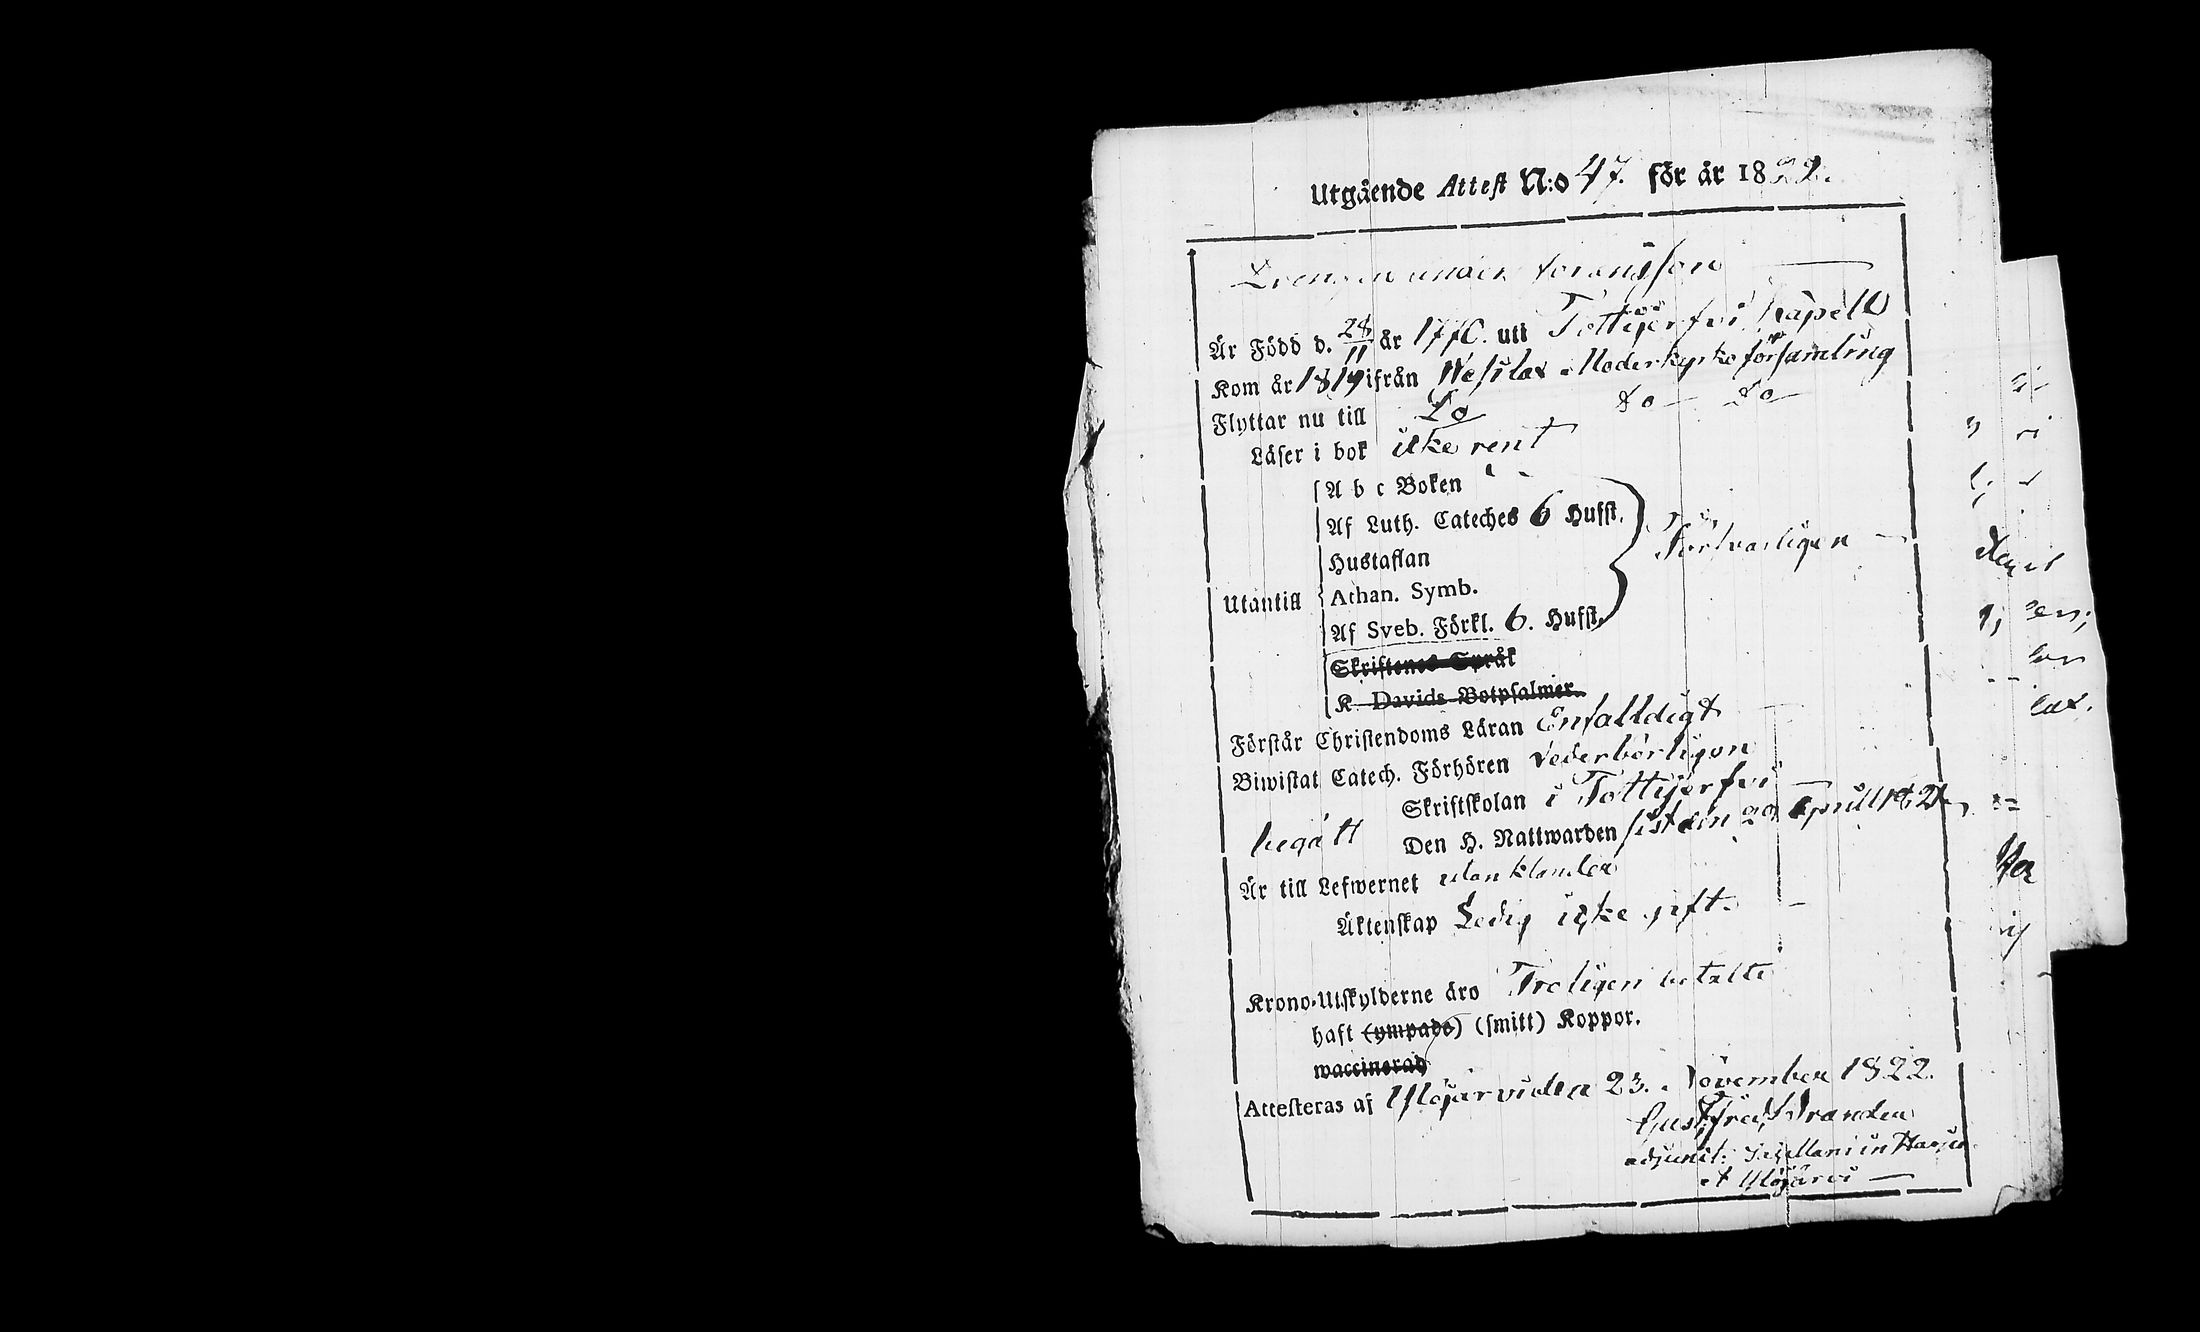 Utgående Attest N:o 47. för år 1822.
Drengen
Är Född d. 28/11 år 1770. uti Tottijerfvi Kapell
Kom år 1819 ifrån Wesilax Moderkyrko församling
Flyttar nu till Do Do Do
Läser i bok icke rent
A b c Boken
Af Luth. Cateches 6 Hufst.
Hustaflan
Utantill Athan. Symb.
Af Sveb. Förkl. 6. Hufst.
Försvarligen
Skriftenes Språk
K. Davids Botpsalmer.
Förstår Christendoms Läran Enfalldigt
Biwistat Catech. Förhören vederbörligen
Skriftskolan i Tottijerfvi
begått Den H. Nattwarden sist den 29 Aprill
Är till Lefwernet utan klander
Äktenskap Ledig icke gift.
Krono-Utskylderne äro Troligen betalte
haft (ympade) (smitt) Koppor.
waccinerad
Attesteras af Ylöjärvi den 23. November 1822.
Gust. Fred.
adjunct: Sacellani in
et Ylöjärvi